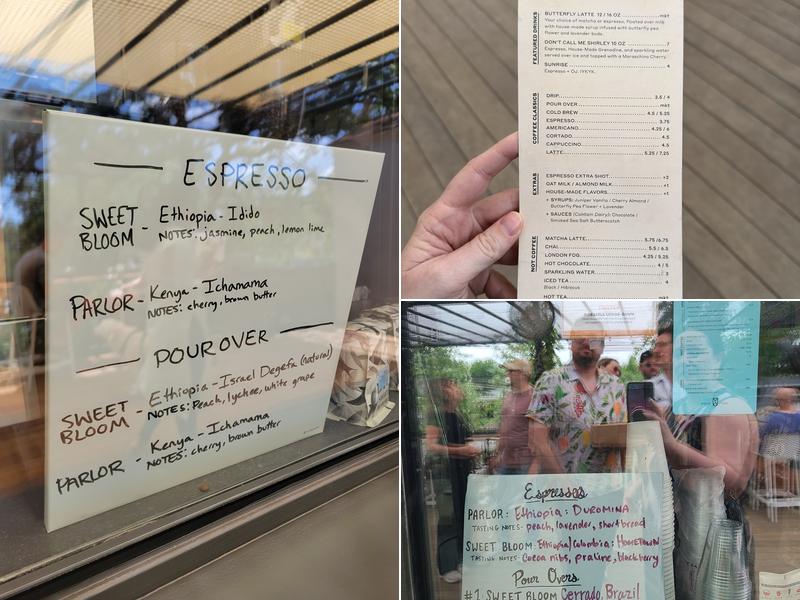 ESPRESSO
SWEET BLOOM - Ethiopia - Idido
NOTES: jasmine, peach, lemon lime
PARLOR - Kenya - Ichamama
NOTES: cherry, brown butter
POUR OVER
SWEET BLOOM - Ethiopia - Israel Degefa (natural)
NOTES: Peach, lychee, white grape
PARLOR - Kenya - Ichamama
NOTES: cherry, brown butter
FEATURED DRINKS
BUTTERFLY LATTE 12 / 16 OZ mkt
Your choice of matcha or espresso, floated over milk
with house made syrup infused with butterfly pea
flower and lavender buds.
DON'T CALL ME SHIRLEY 10 OZ 7
Espresso, House-Made Grenadine, and sparkling water
served over ice and topped with a Maraschino Cherry.
SUNRISE 4
Espresso + OJ. IYKYK.
COFFEE CLASSICS
DRIP 3.5 / 4
POUR OVER mkt
COLD BREW 4.5 / 5.25
ESPRESSO 3.75
AMERICANO 4.25 / 6
CORTADO 4.5
CAPPUCCINO 4.5
LATTE 5.25 / 7.25
EXTRAS
ESPRESSO EXTRA SHOT +2
OAT MILK / ALMOND MILK +1
HOUSE-MADE FLAVORS +1
+ SYRUPS: Juniper Vanilla / Cherry Almond /
Butterfly Pea Flower + Lavender
+ SAUCES (Contain Dairy): Chocolate /
Smoked Sea Salt Butterscotch
NOT COFFEE
MATCHA LATTE 5.75 / 6.75
CHAI 5.5 / 6.5
LONDON FOG 4.25 / 5.25
HOT CHOCOLATE 4 / 5
SPARKLING WATER 3
ICED TEA 4
Black / Hibiscus
HOT TEA mkt
Espressos
PARLOR: Ethiopia: DUROMINA
TASTING NOTES: peach, lavender, shortbread
SWEET BLOOM: Ethiopia/Colombia: HOMETOWN
TASTING NOTES: cocoa nibs, praline, blackberry
Pour Overs
#1. SWEET BLOOM Cerrado, Brazil